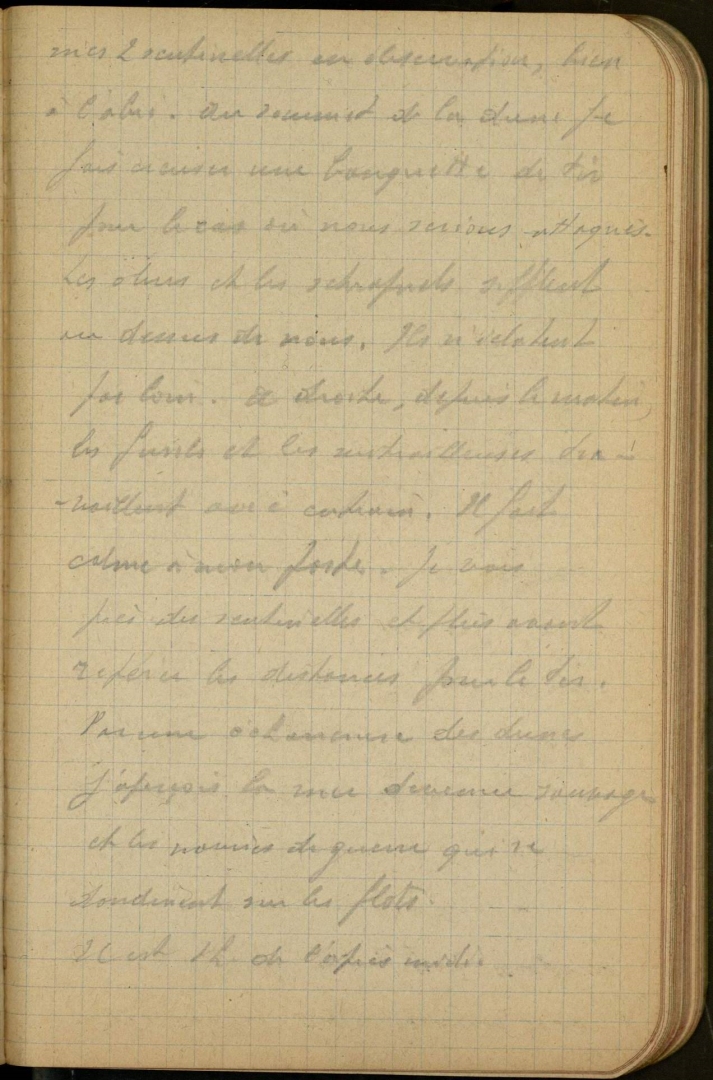 mes 2 sentinelles en observation, bien
à l'abri. Au sommet de la dune je
fais creuser une banquette de tir
pour le cas où nous serions attaqués.
Les obus et les schrapnels sifflent
au dessus de nous. Ils n'éclatent
pas loin. à droite, depuis le matin,
les fusils et les mitrailleuses tra-
-vaillent avec entrain. Il fait
calme à mon poste. Je vais
près des sentinelles et plus avant
repérer les distances pour le tir.
Par une échancrure des dunes
j'aperçois la mer devenue sauvage
et les navires de guerre qui se
dandinent sur les flots.
Il est 2h de l'après midi.